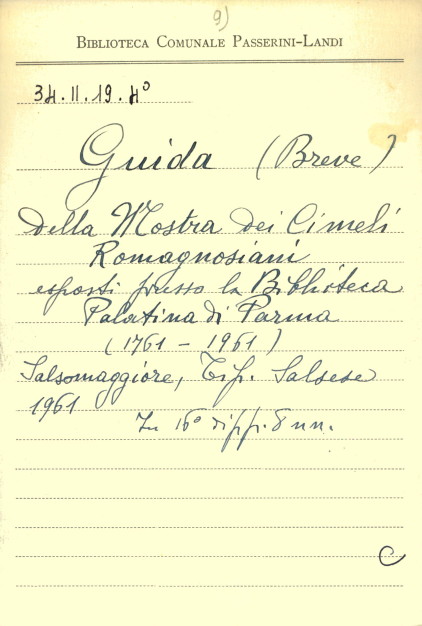 9)
BIBLIOTECA COMUNALE PASSERINI-LANDI
34.II.19.4º
Guida (Breve)
della Mostra dei Cimeli
Romagnosiani
esposti presso la Biblioteca
Palatina di Parma
(1761 - 1961)
Salsomaggiore, Tip. Salsese
1961
In 16º di pp. 8 nn.
C